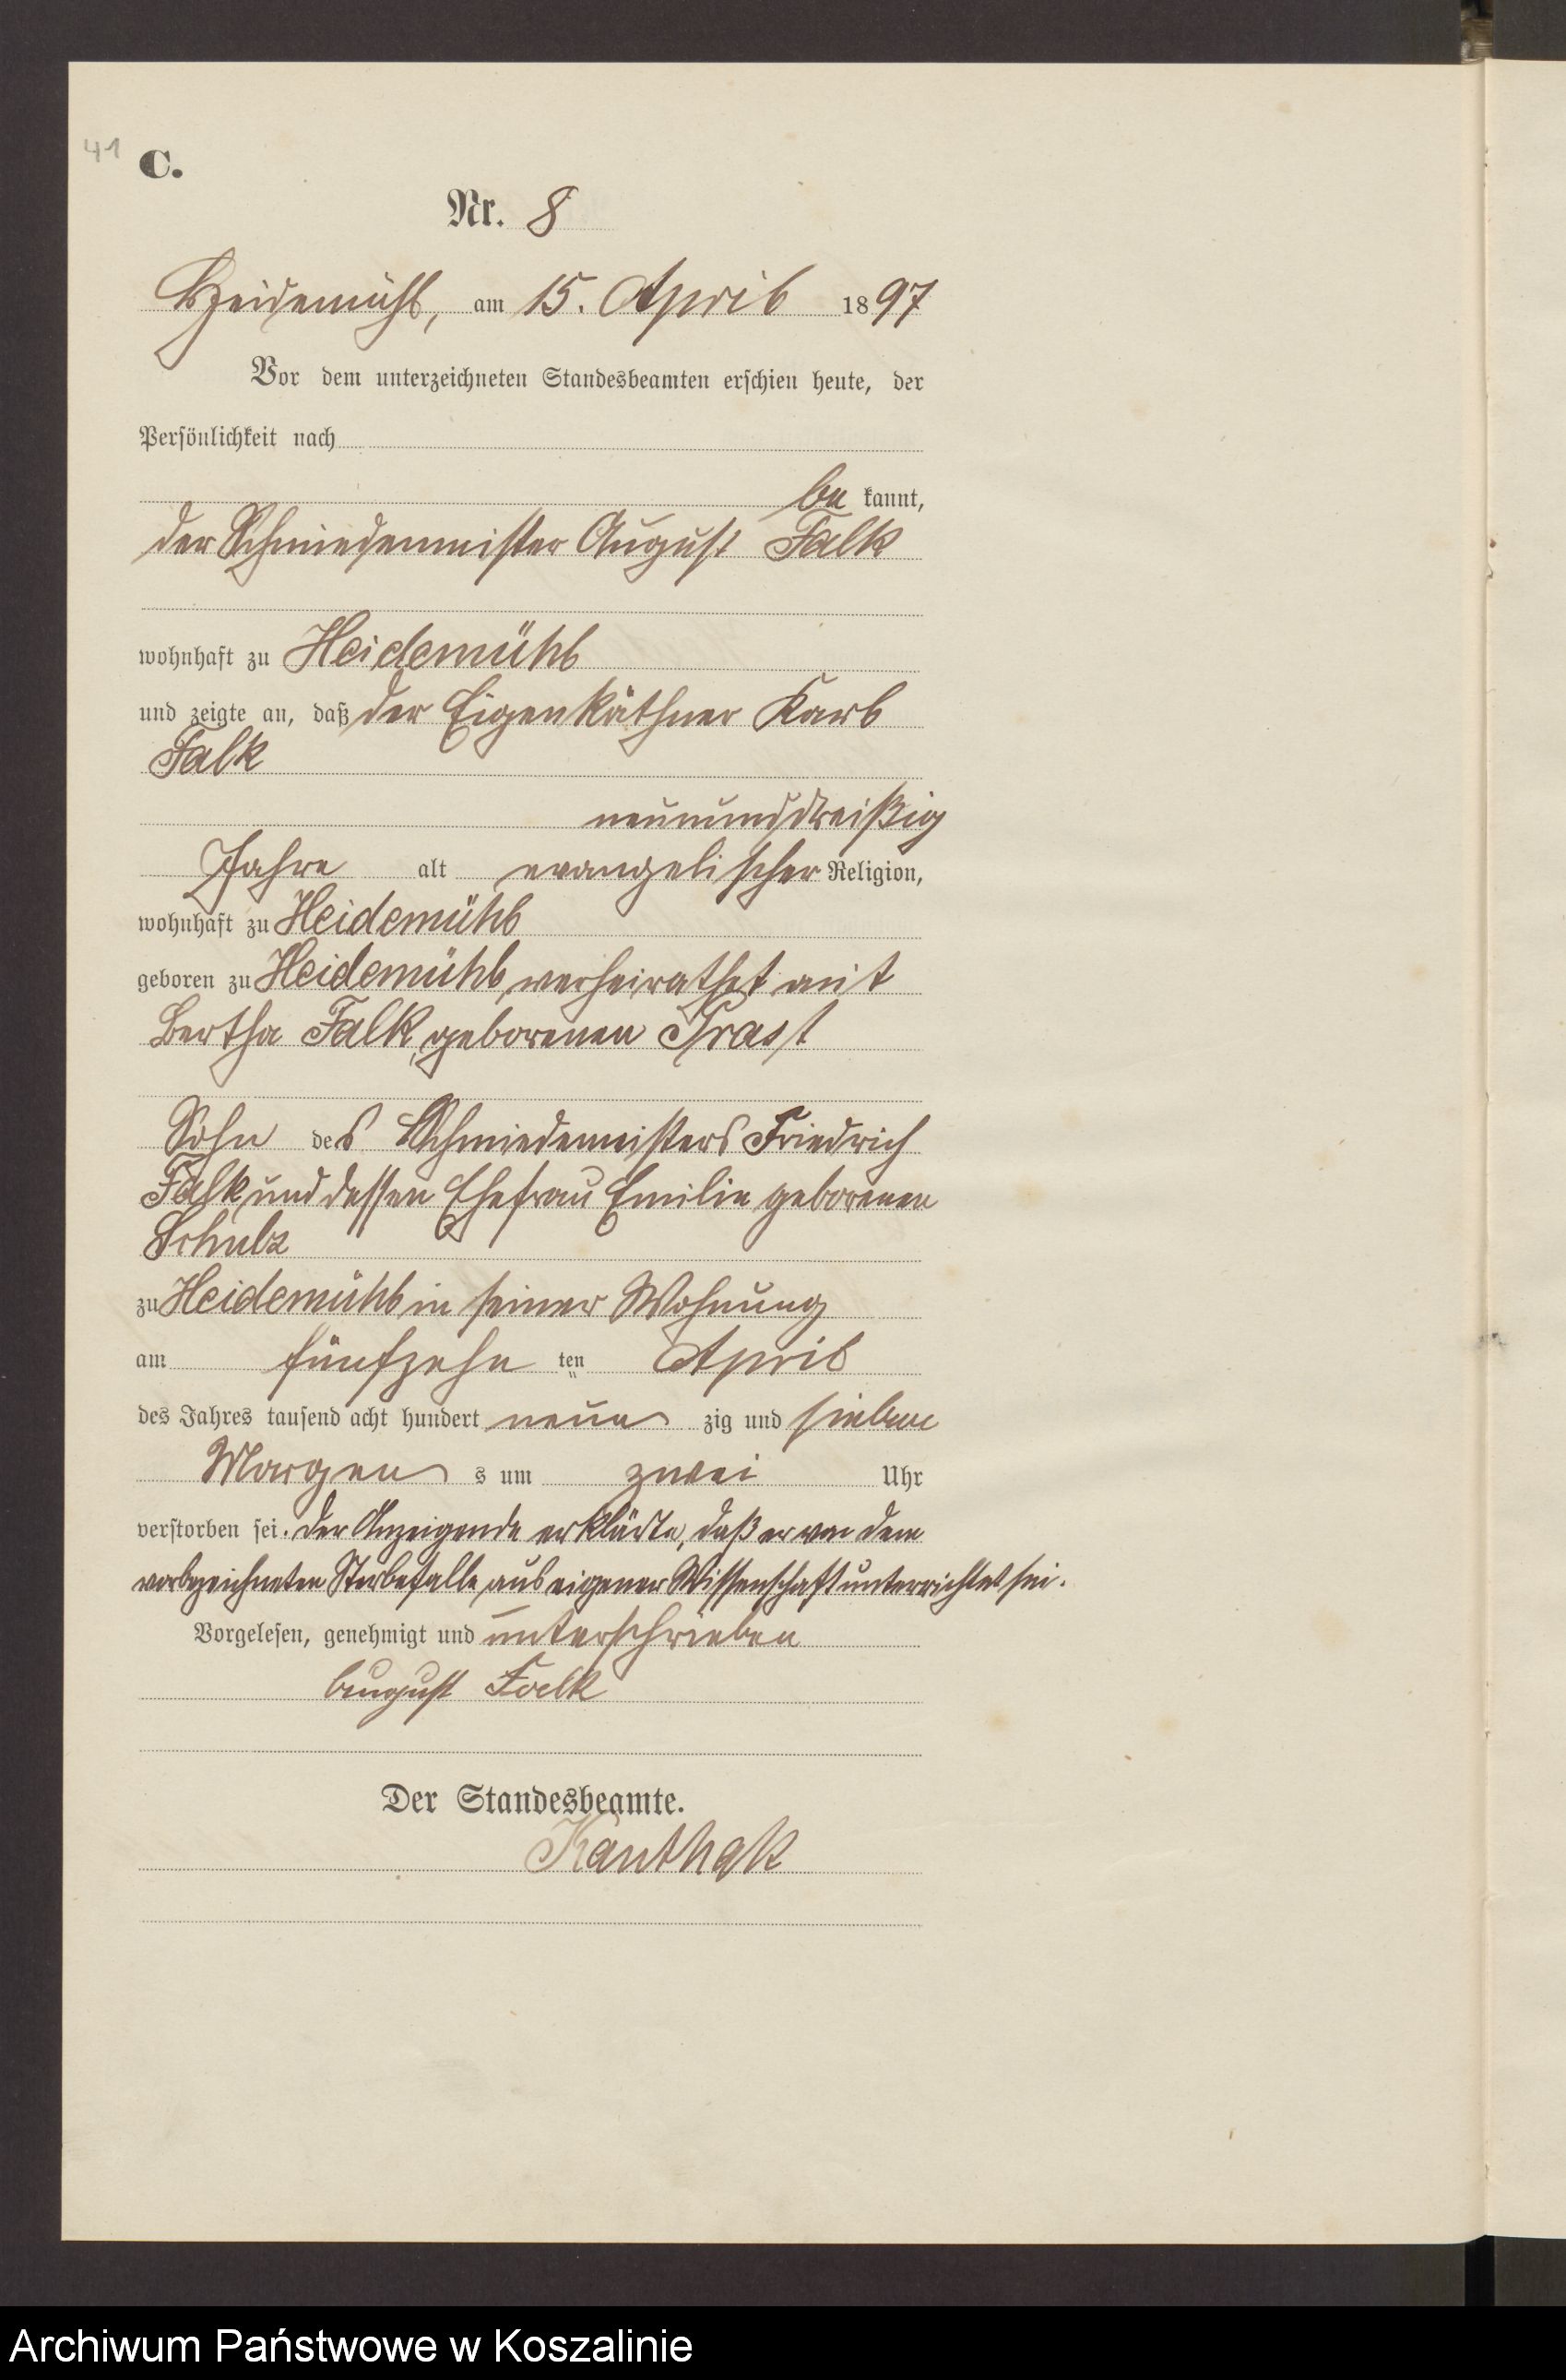 41
C.
Nr. 8
Heidemühl, am 15. April 1897
Vor dem unterzeichneten Standesbeamten erschien heute, der
Persönlichkeit nach
be kannt,
der Schmiedemeister August Falk
wohnhaft zu Heidemühl
und zeigte an, daß der Eigenkäthner Karl
Falk
neununddreißig
Jahre alt evangelischer Religion,
wohnhaft zu Heidemühl
geboren zu Heidemühl, verheirathet mit
Bertha Falk, geborenen Trast
Sohn des Schmiedemeisters Friedrich
Falk und dessen Ehefrau Emilie geborenen
Schulz
zu Heidemühl in seiner Wohnung
am fünfzehn ten April
des Jahres tausend acht hundert neun zig und sieben
Morgen s um zwei Uhr
verstorben sei. Der Anzeigende erklärte, daß er von dem
vorbezeichneten Sterbefalle aus eigener Wissenschaft unterrichtet sei.
Vorgelesen, genehmigt und unterschrieben
August Falk
Der Standesbeamte.
Kanthak
Archiwum Państwowe w Koszalinie